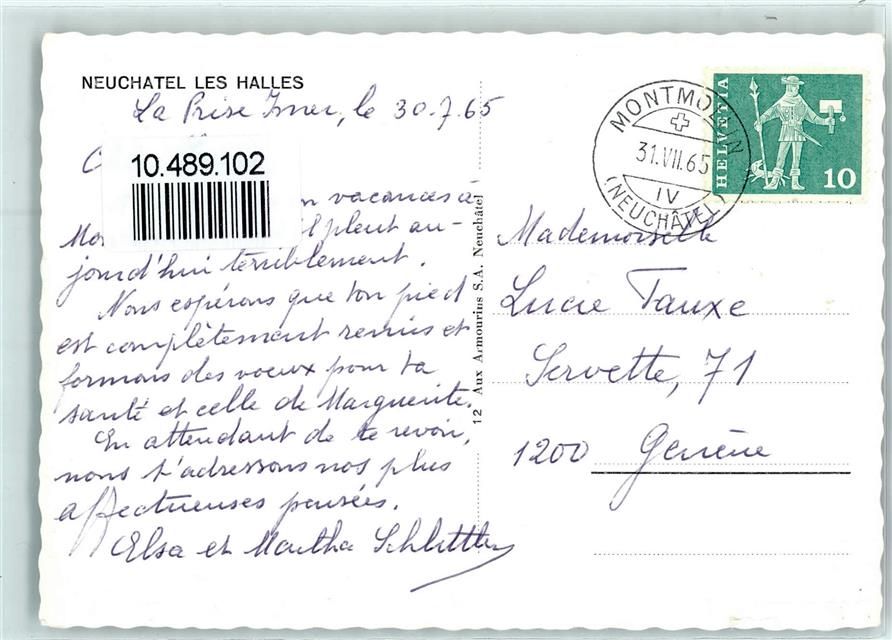 NEUCHATEL LES HALLES
La Prise Imer, le 30.7.65
10.489.102
n vacances à
Mo il pleut au-
jourd'hui terriblement.
Nous espérons que ton pied
est complètement remis et
formons des voeux pour ta
santé et celle de Marguerite.
En attendant de te revoir,
nous t'adressons nos plus
affectueuses pensées.
Elsa et Martha Schlittler
12 Aux Armourins S.A. Neuchâtel
MONTMOLLIN
31.VII.65
IV
(NEUCHÂTEL)
HELVETIA
10
Mademoiselle
Lucie Tauxe
Servette, 71
1200 Genève